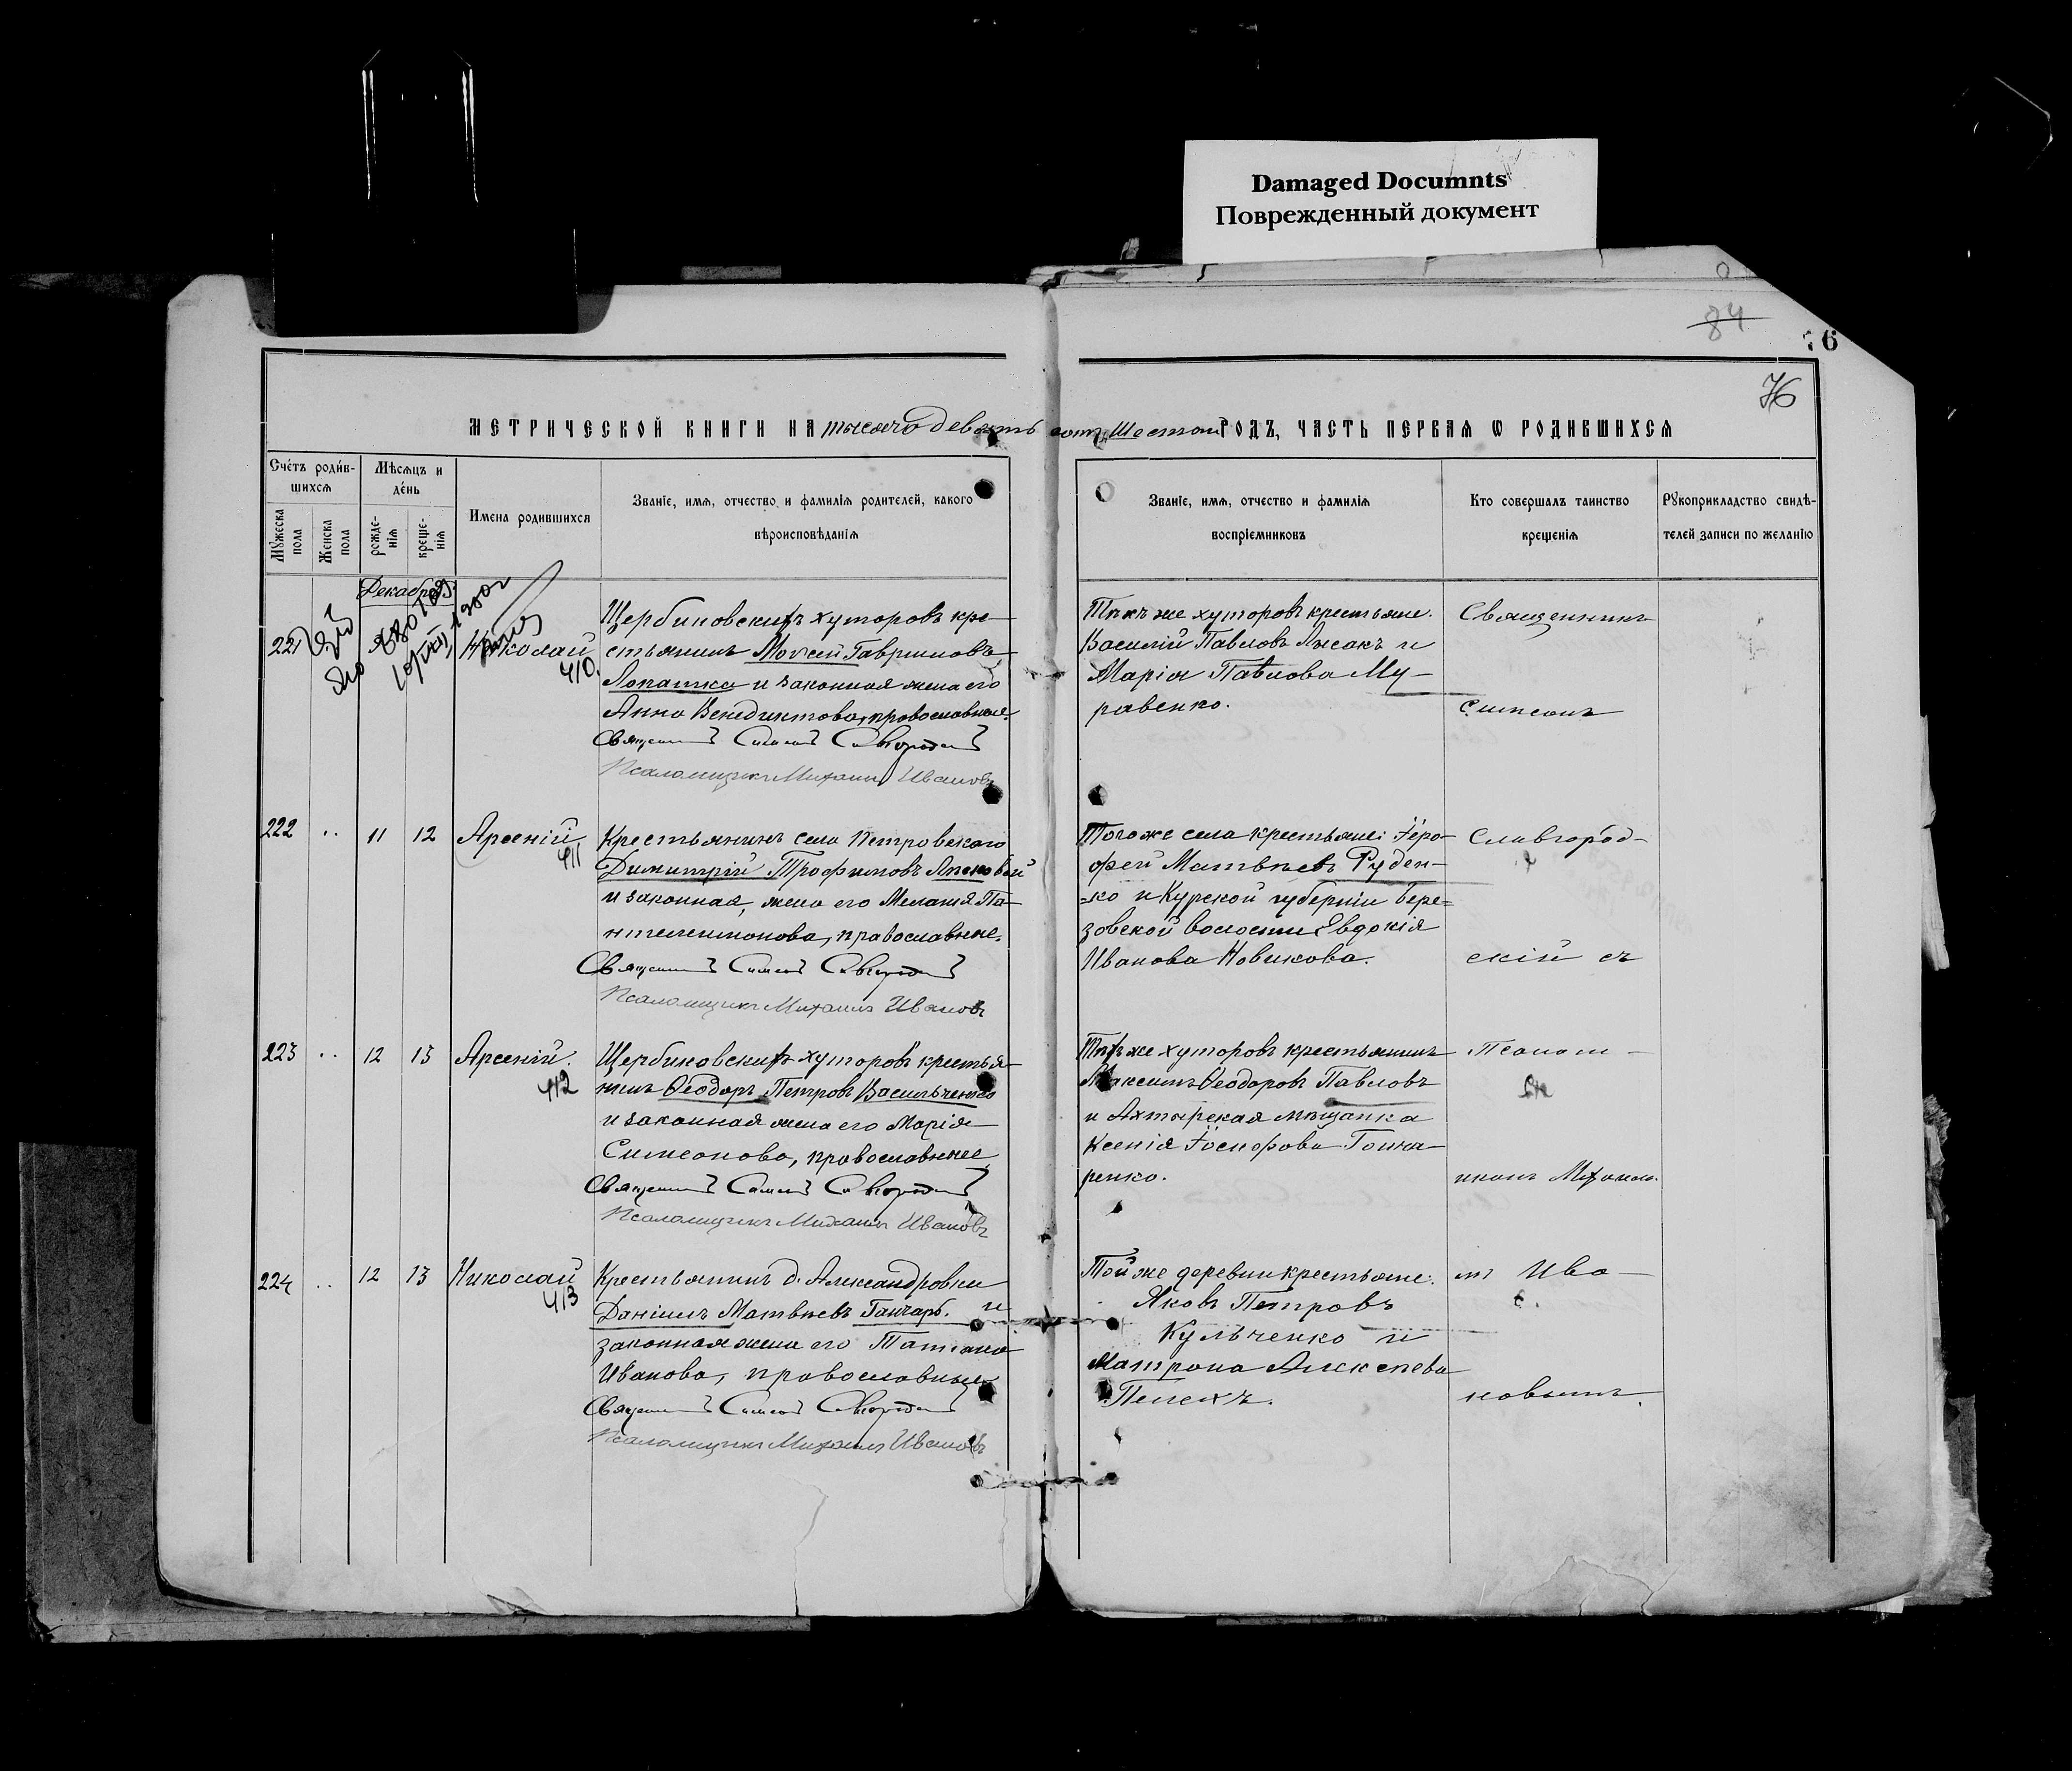 Damaged Documnts
Поврежденный документ
84
76
76
МЕТРИЧЕСКОЙ КНИГИ НА тысяча девять сотъ шестой ГОДЪ, ЧАСТЬ ПЕРВАЯ Ѡ РОДИВШИХСЯ
Счетъ родив-
шихся
Мѣсяцъ и
день
Имена родившихся
Званіе, имя, отчество и фамилія родителей, какого
вѣроисповѣданія
Званіе, имя, отчество и фамилія
воспріемниковъ
Кто совершалъ таинство
крещенія
Рукоприкладство свидѣ-
телей записи по желанію
Мужеска
пола
Женска
пола
рожде-
нія
креще-
нія
Декабрь
221
Николай
410.
Щербиновскихъ хуторовъ кре-
стьянинъ Моисей Гавриловъ
Лопатка и законная жена его
Анна Венедиктова, православные.
Священникъ Симеонъ Славгородскій
Псаломщикъ Михаилъ Ивановъ
Тѣхъ же хуторовъ крестьяне:
Василій Павловъ Лысакъ и
Марія Павлова Му-
равенко.
Священникъ
Симеонъ
222 .. 11 12 Арсеній
411
Крестьянинъ села Петровского
Димитрій Трофимовъ
и законная жена его Меланія Па-
нтелеимонова, православные.
Священникъ Симеонъ Славгородскій
Псаломщикъ Михаилъ Ивановъ
Того же села крестьяне: Іеро-
фей Матвѣевъ Руден-
=ко и Курской губерніи Бере=
зовской волости Евдокія
Иванова Новикова.
Славгород-
скій съ
223 .. 12 13 Арсеній.
412
Щербиновскихъ хуторовъ крестья-
нинъ Ѳеодоръ Петровъ Васильченко
и законная жена его Марія
Симеонова, православные
Священникъ Симеонъ Славгородскій
Псаломщикъ Михаилъ Ивановъ
Тѣхъ же хуторовъ крестьянинъ
Максимъ Ѳеодоровъ Павловъ
и Ахтырская мѣщанка
Ксенія Іосифова Гонча-
ренко.
Псалом-
щикомъ Михаило-
224 .. 12 13 Николай
413
Крестьянинъ д. Александровки
Даніилъ Матвѣевъ Ганчаръ. и
законная жена его Татіана
Иванова, православные
Священникъ Симеонъ Славгородскій
Псаломщикъ Михаилъ Ивановъ
Той же деревни крестьяне:
Яковъ Петровъ
Кульченко и
Матрона Алексѣева
мъ Ива-
новымъ.